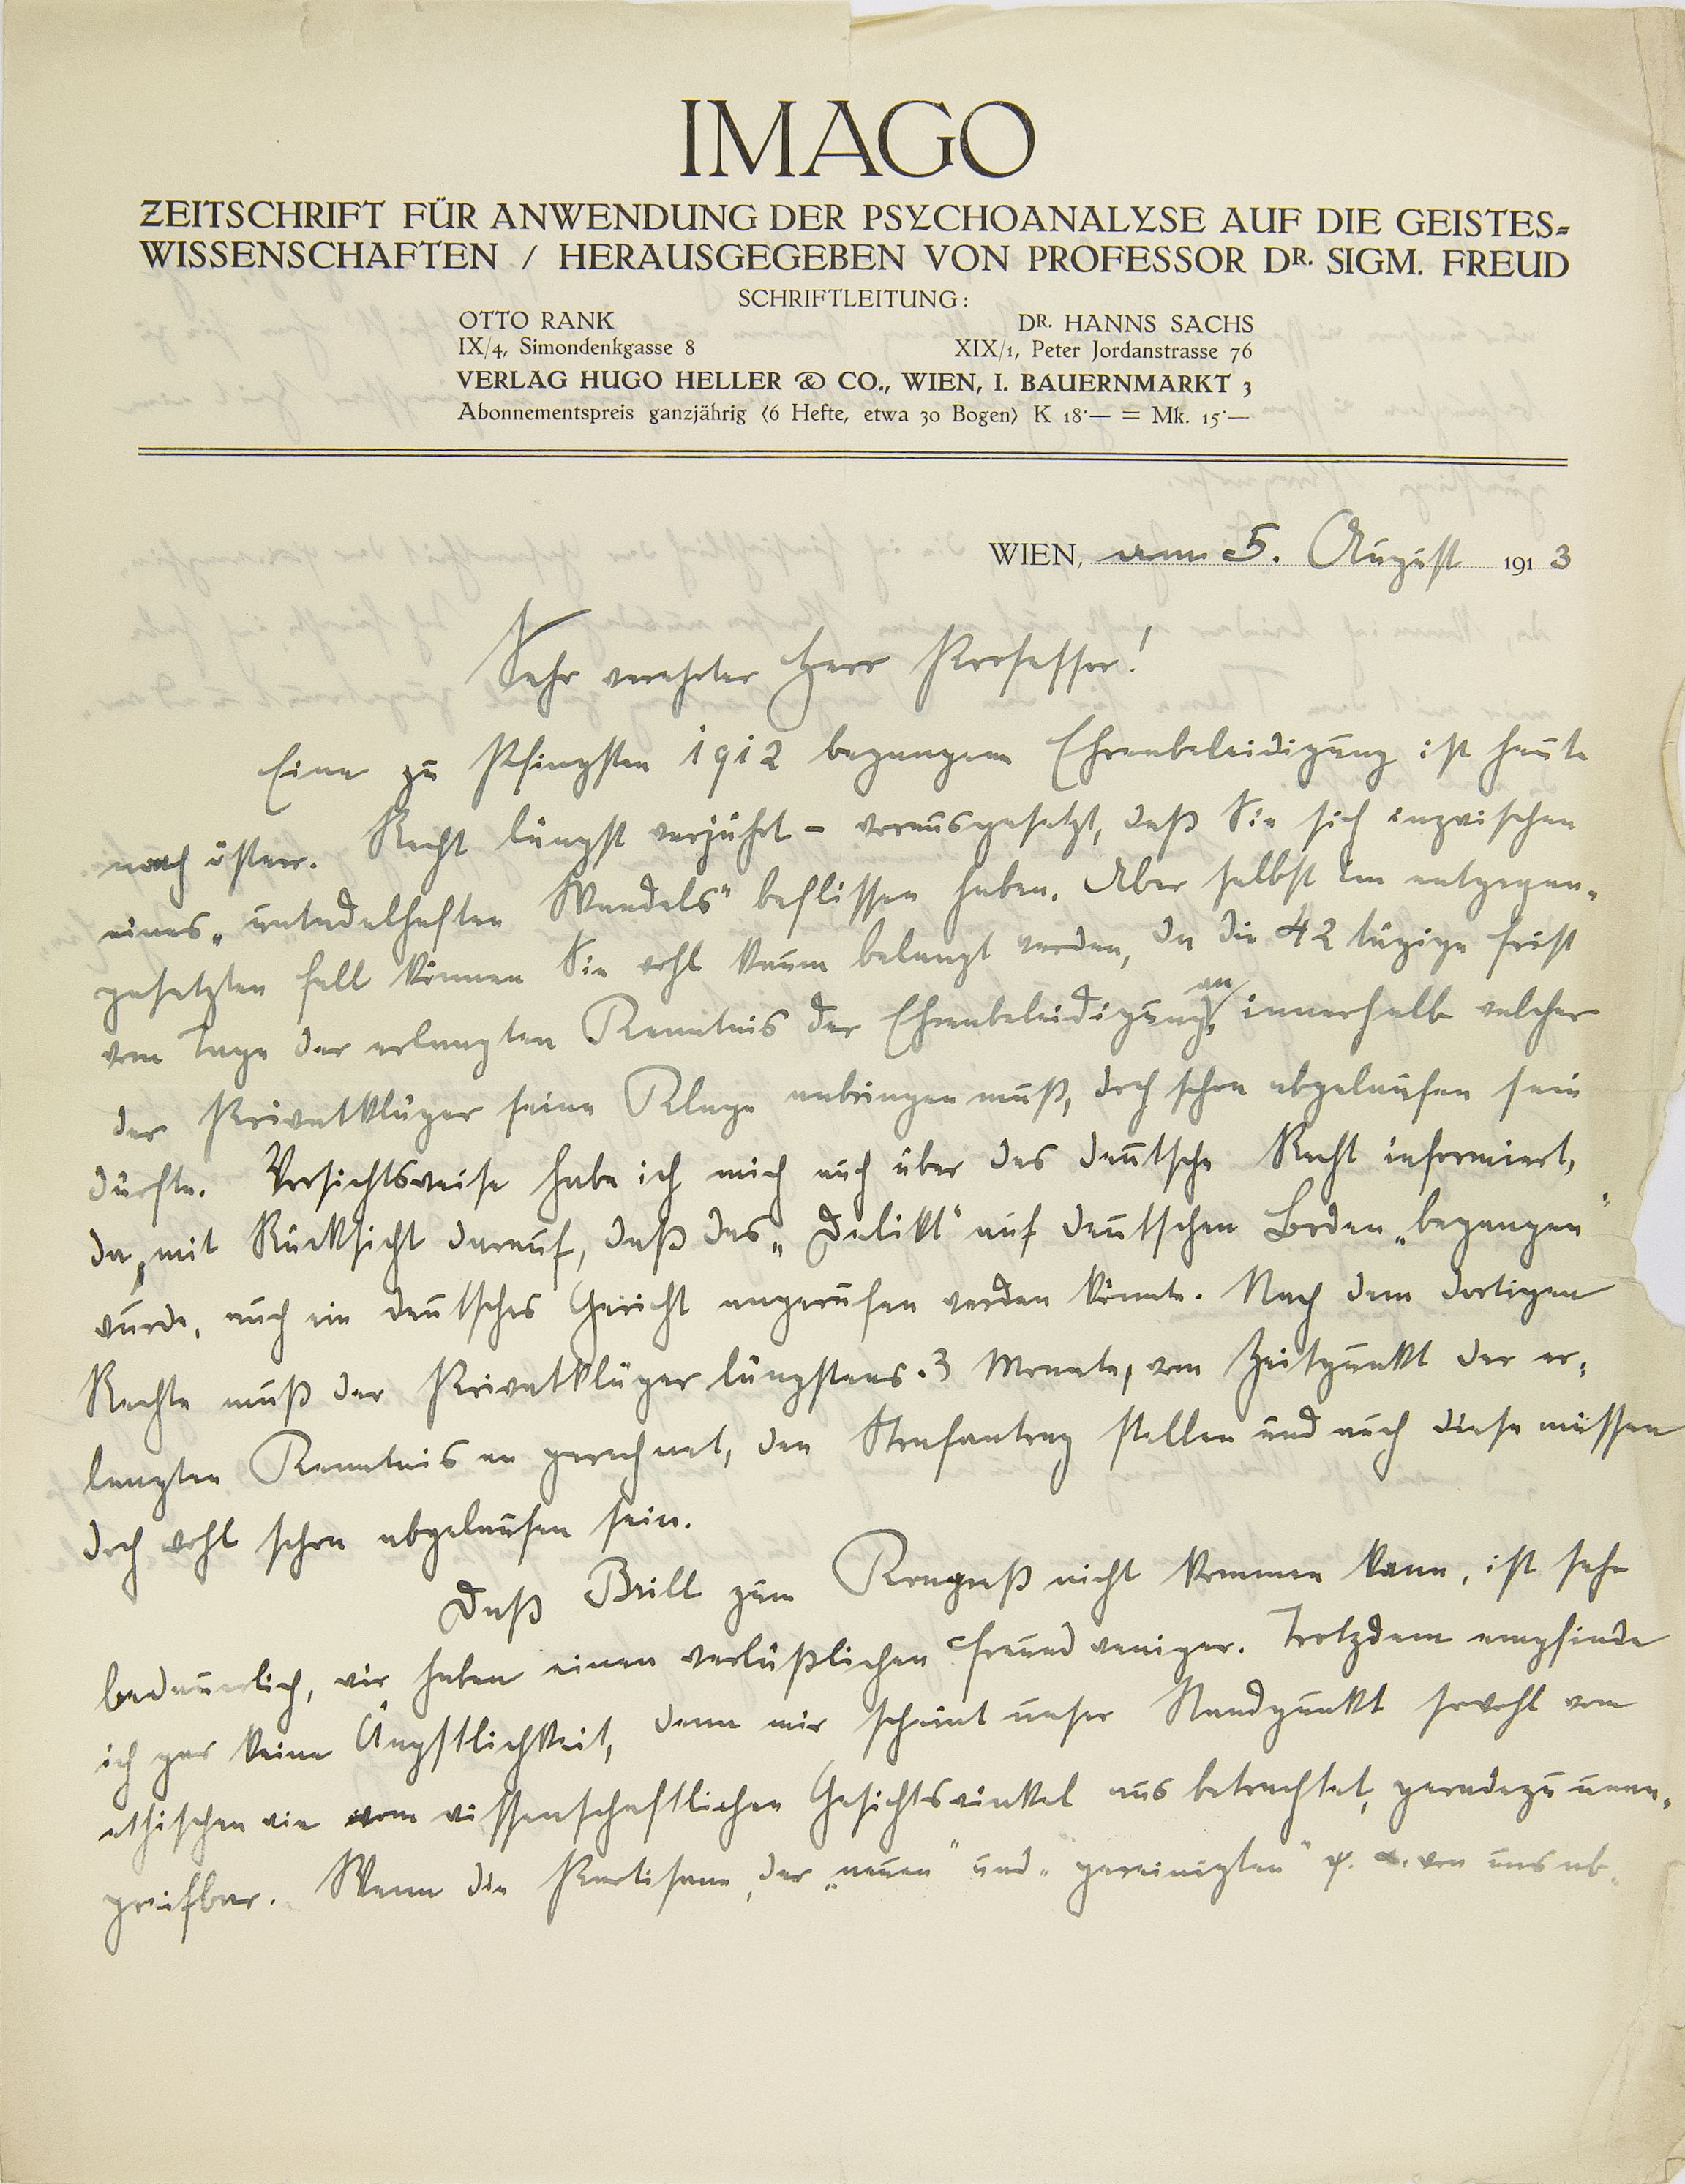 IMAGO
ZEITSCHRIFT FÜR ANWENDUNG DER PSYCHOANALYSE AUF DIE GEISTES-
WISSENSCHAFTEN / HERAUSGEGEBEN VON PROFESSOR DR. SIGM. FREUD
SCHRIFTLEITUNG:
OTTO RANK DR. HANNS SACHS
IX/4, Simondenkgasse 8 XIX/1, Peter Jordanstrasse 76
VERLAG HUGO HELLER & CO., WIEN, I. BAUERNMARKT 3
Abonnementspreis ganzjährig (6 Hefte, etwa 30 Bogen) K 18·— = Mk. 15·—
WIEN, am 5. August 1913
Sehr verehrter Herr Professor!
Eine zu Pfingsten 1912 begangene Ehrenbeleidigung ist heute
nach österr. Recht längst verjährt – vorausgesetzt, daß Sie sich inzwischen
eines „untadelhaften Wandels" beflissen haben. Aber selbst im entgegen-
gesetzten Fall können Sie wohl kaum belangt werden, da die 42 tägige Frist
vom Tage der erlangten Kenntnis der Ehrenbeleidigung an, innerhalb welcher
der Privatkläger seine Klage anbringen muß, doch schon abgelaufen sein
dürfte. Vorsichtsweise habe ich mich auch über das deutsche Recht informiert,
da, mit Rücksicht darauf, daß das „Delikt" auf deutschen Boden „begangen"
wurde, auch ein deutsches Gericht angerufen werden könnte. Nach dem dortigen
Rechte muß der Privatkläger längstens 3 Monate, vom Zeitpunkt der er-
langten Kenntnis an gerechnet, den Strafantrag stellen und auch diese müssen
doch wohl schon abgelaufen sein.
Daß Brill zum Kongreß nicht kommen kann, ist sehr
bedauerlich, wir haben einen verläßlichen Freund weniger. Trotzdem empfinde
ich gar keine Ängstlichkeit, denn mir scheint unser Standpunkt sowohl vom
ethischen wie vom wissenschaftlichen Gesichtswinkel aus betrachtet, geradezu unan-
greifbar. Wenn die Partisane der „neuen" und „gereinigten" ψ. α. von uns ab-